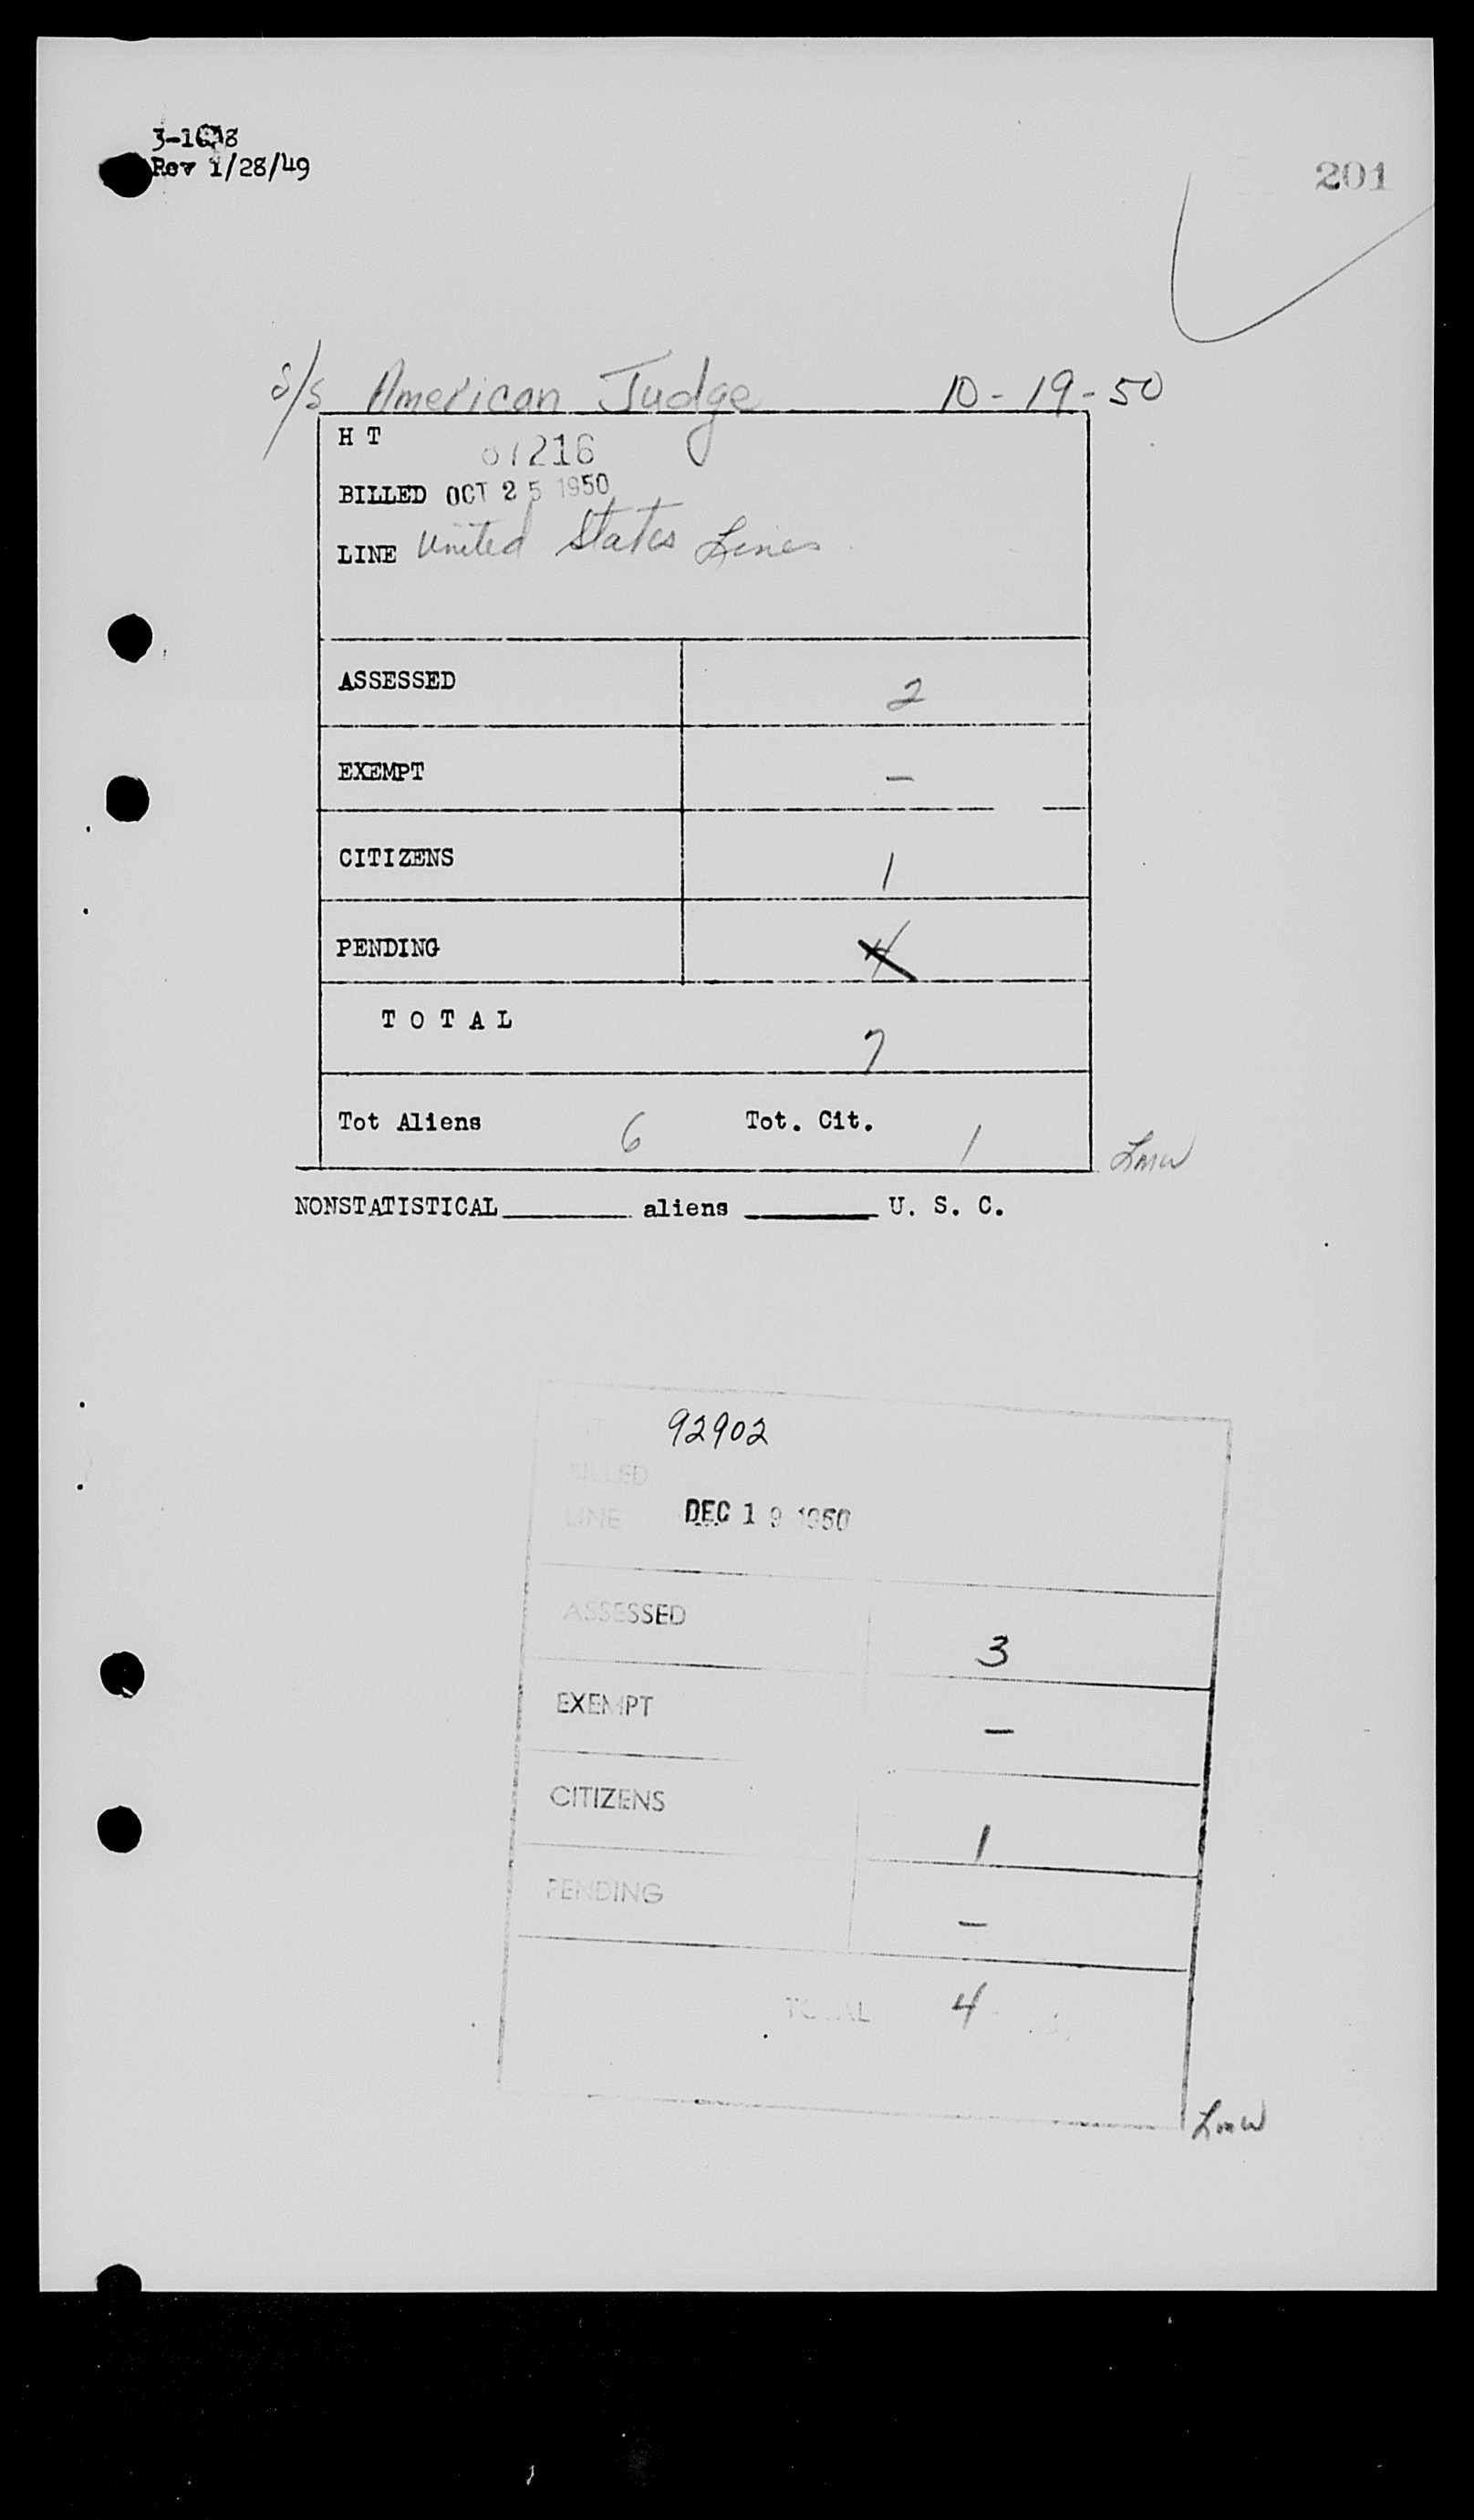 201
Rev 1/28/49
S/S American Judge 10-19-50
H T 87216
BILLED OCT 25 1950
LINE United States Lines
ASSESSED 2
EXEMPT —
CITIZENS 1
PENDING 4
TOTAL 7
Tot Aliens 6 Tot. Cit. 1
Lmw
NONSTATISTICAL aliens U. S. C.
92902
BILLED
LINE DEC 19 1950
ASSESSED 3
EXEMPT —
CITIZENS 1
PENDING —
TOTAL 4
Lmw